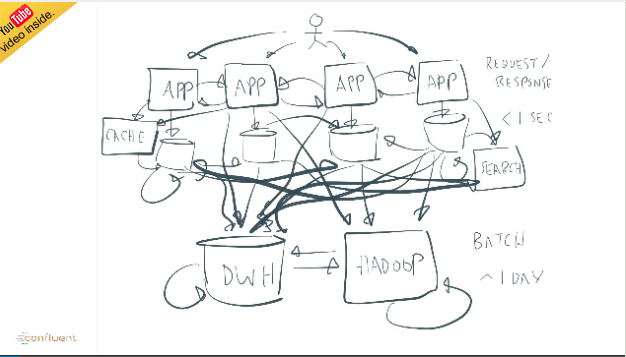 You Tube
video inside.
APP
APP
APP
APP
REQUEST/
RESPONSE
< 1 SEC
CACHE
SEARCH
DWH
HADOOP
BATCH
~ 1 DAY
confluent